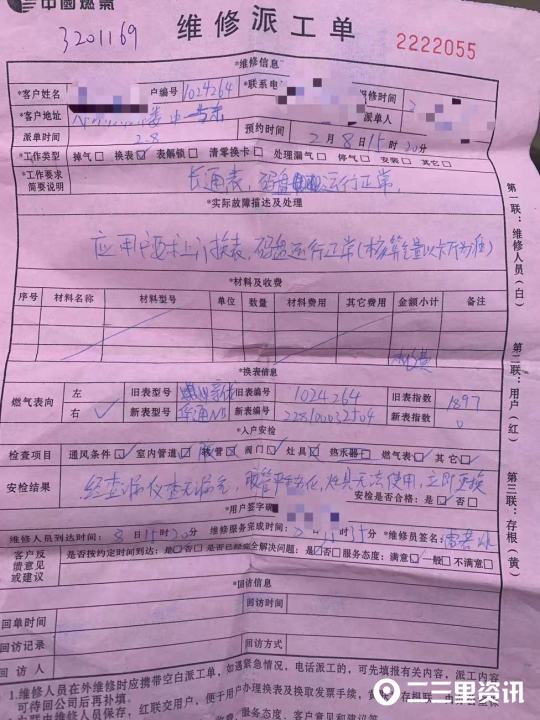 中國燃氣
维修派工单
3201169
2222055
*维修信息
*客户姓名 户编号 1024264 *联系电 报修时间 2
*客户地址 派单人
派单时间 2.8 预约时间 2月8日15时20分
*工作类型 掉气□ 换表☑ 表解锁□ 清零换卡□ 处理漏气□ 停气□ 安装□ 其它□
*工作要求 简要说明 长通表，码盘 运行正常，
*实际故障描述及处理
应用户要求上门换表，码盘运行正常(核算气量以卡所为准)
*材料及收费
序号 材料名称 材料型号 单位 数量 材料费用 其它费用 金额小计 备注
*换表信息
燃气表向 左 旧表型号 旧表编号 1024264 旧表指数 1897
右 ✓ 新表型号 新表编号 新表指数 0
*入户安检
检查项目 通风条件☑ 室内管道☑ 软管☑ 阀门☑ 灶具☑ 热水器□ 燃气表☑ 其它□
安检结果 经查漏仪查无漏气，胶管 老化，灶具无法使用，立即更换
安检是否合格：是☑ 否□
*用户签字确
维修人员到达时间：8日15时20分 维修服务完成时间： 15时35分 *维修员签名：
客户反馈意见或建议 是否按约定时间到达：是☑否□ 是否已经完全解决问题：是☑否□ 服务态度：满意☑ 一般□ 不满意□
*回访信息
回单时间 回访时间
回访记录 回访方式
回访人
1.维修人员在外维修时应携带空白派工单，如遇紧急情况，电话派工的，可先填报有关内容，派工内
可待回公司后再补填。
联由维修人员保存，红联交用户，便于用户办理换表及换取发票手续，
第一联：维修人员(白)
第二联：用户(红)
第三联：存根(黄)
二三里资讯